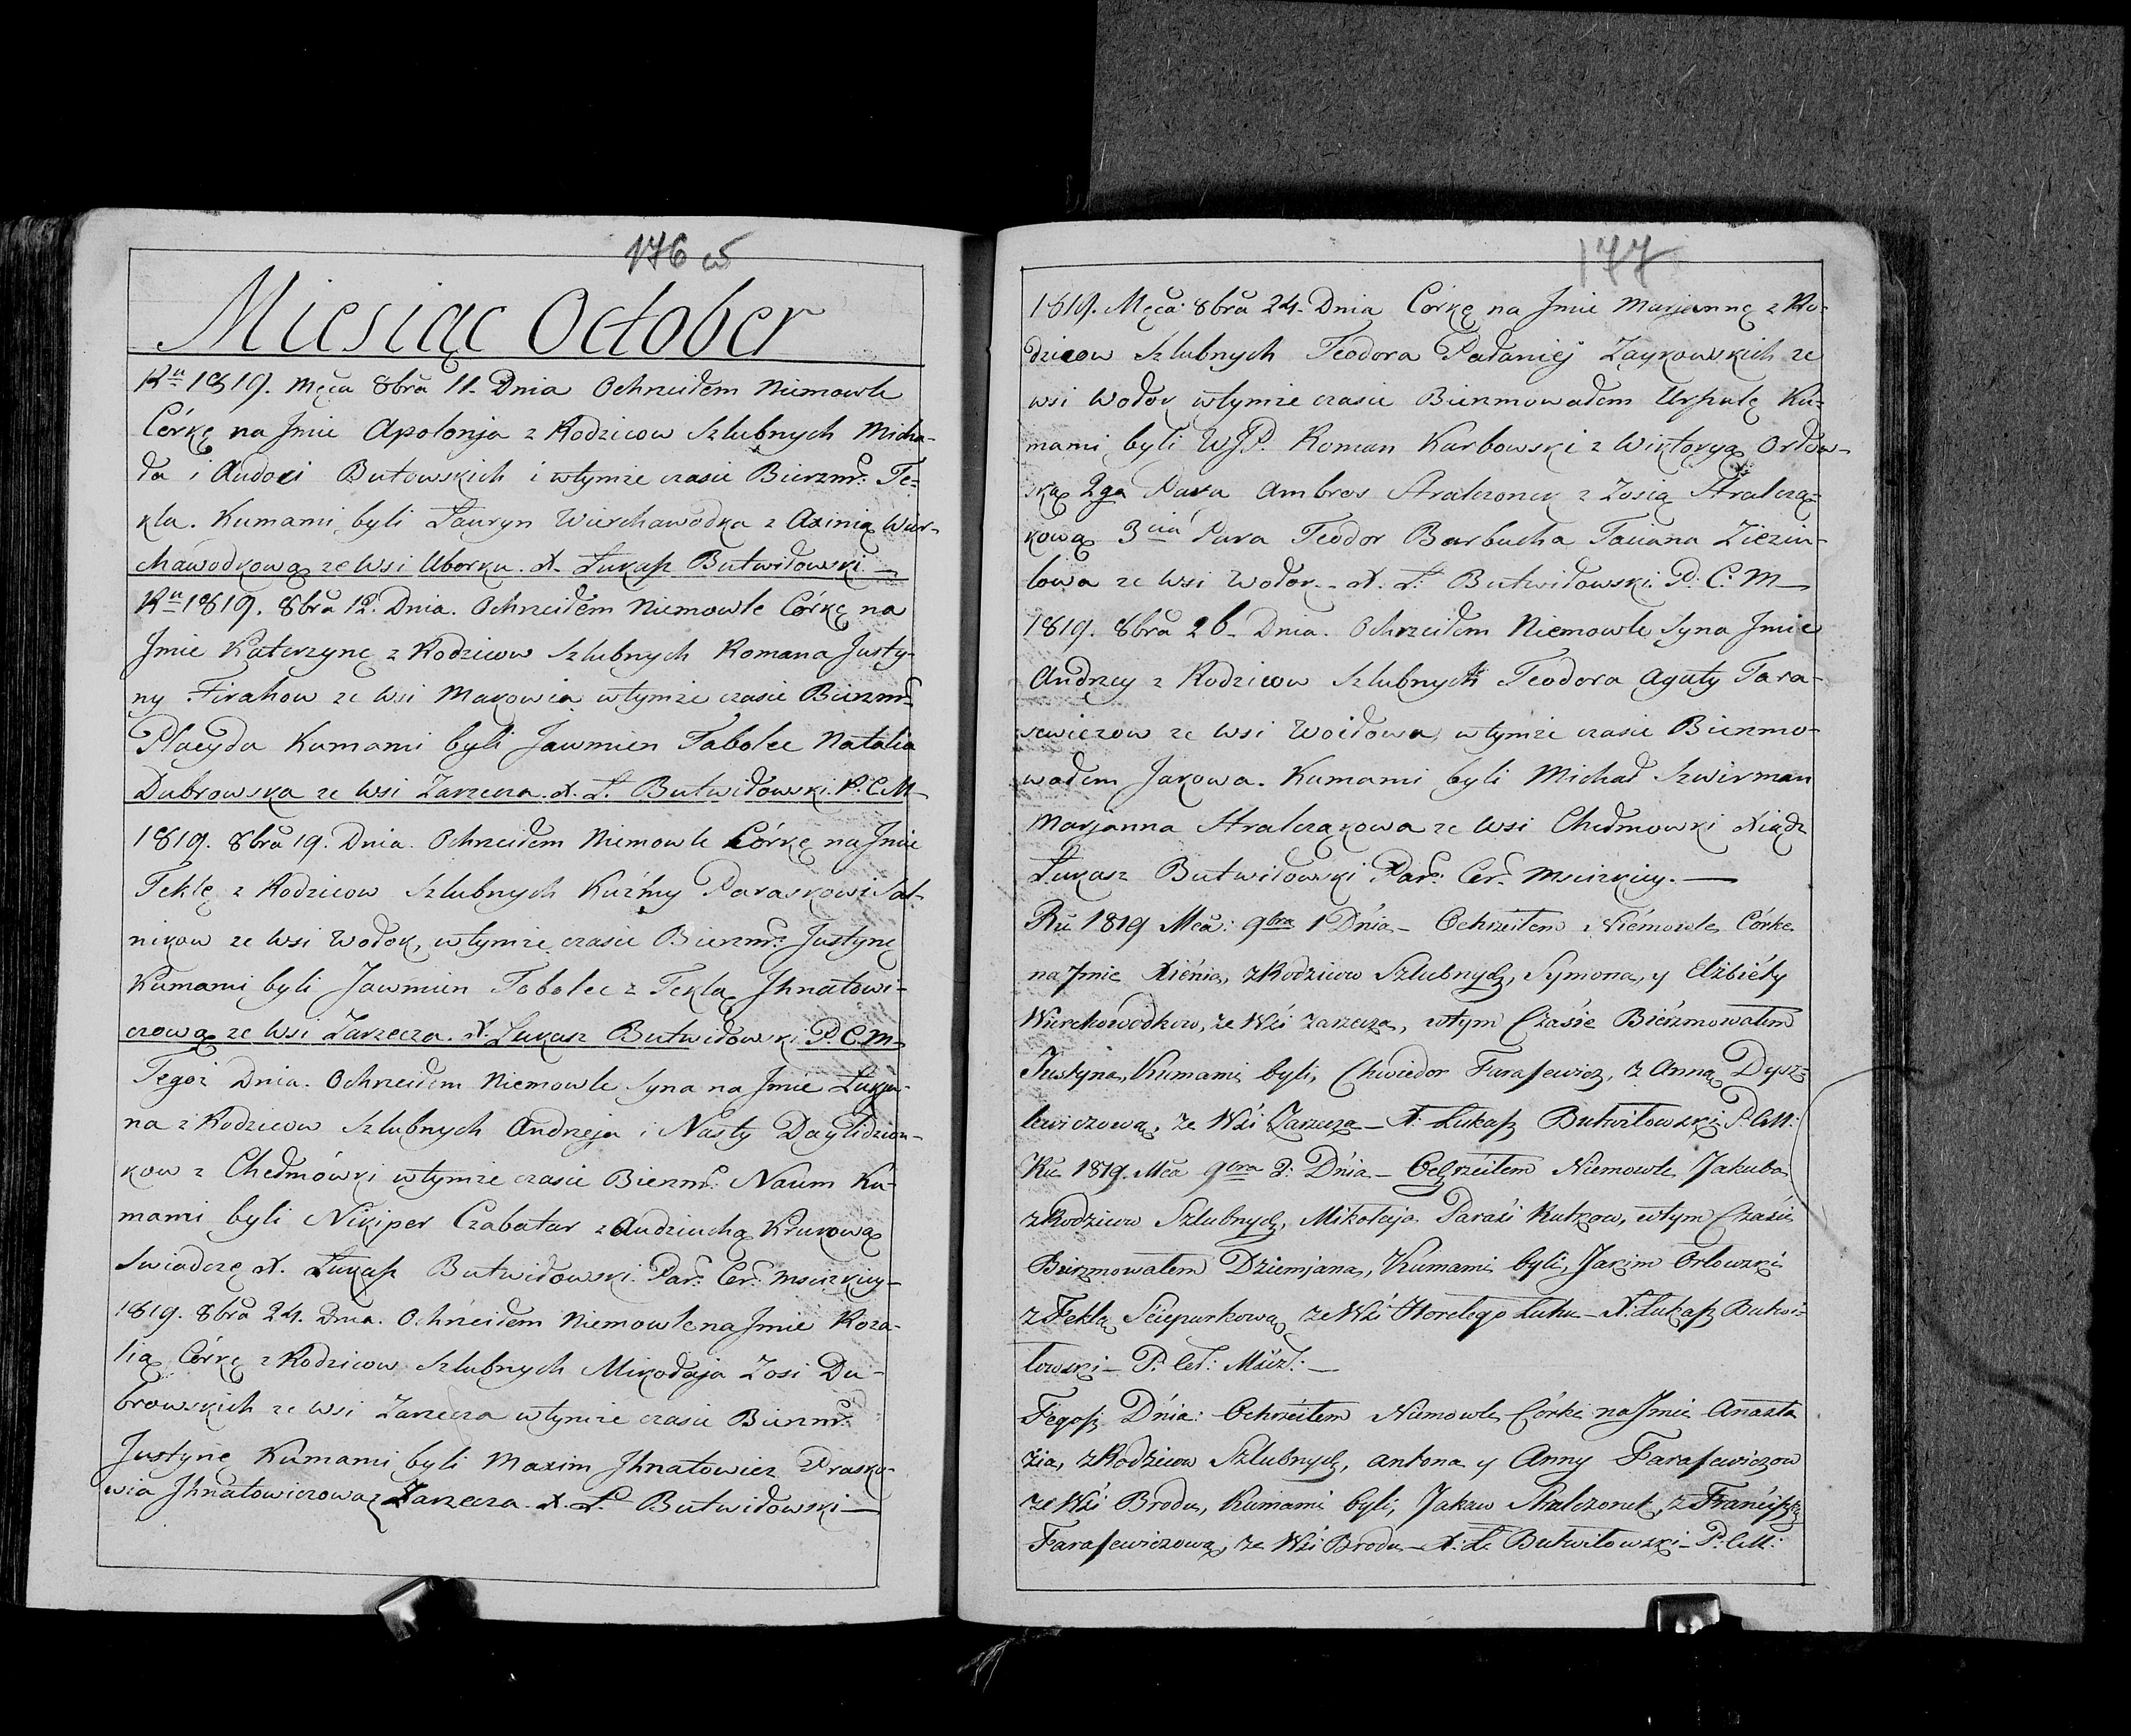 176 об
Miesiąc October
Ru 1819. Męca 8bra 11. Dnia Ochrzciłem Niemowle
Córkę na Jmie Apolonja z Rodzicow Szlubnych Micha-
ła i Audoci Butowskich i wtymże czasie Bierzmo. Te-
kla. Kumami byli Łauryn Wierchawodka z Axinią Wier-
chawodkową ze Wsi Uborku. X. Łukasz Butwiłowski.
Ru 1819. 8bra 12. Dnia. Ochrzciłem Niemowle Córkę na
Jmie Katerzynę z Rodzicow Szlubnych Romana Justy-
ny Firahow ze Wsi Makowia wtymże czasie Bierzmo
Placyda Kumami byli Jawmien Tabolec Natalia
Dubrowska ze Wsi Zarzecza. X. Ł. Butwiłowski. P. C. M
1819. 8bra 19. Dnia. Ochrzciłem Niemowle Córkę na Jmie
Teklę z Rodzicow Szlubnych Kuźmy Paraskowi Sat-
nikow ze Wsi Wołok, wtymże czasie Bierzmo. Justynę
Kumami byli Jawmien Tobolec z Teklą Jhnatowi-
czową ze Wsi Zarzecza. X. Łukasz Butwiłowski P. C. M
Tegoż Dnia. Ochrzciłem Niemowle Syna na Jmie Łukja-
na z Rodzicow Szlubnych Andrzeja i Nasty Daylidzion-
kow z Chełmówki wtymże czasie Bierzmo. Naum Ku-
mami byli Nikiper Czabatar z Audziuchą Krukową
Swiadczę X. Łukasz Butwiłowski. Par. Cer. Mscizkiey
1819. 8bra 24. Dnia. Ochrzciłem Niemowle na Jmie Roza-
lią Córkę z Rodzicow Szlubnych Mikołaja Zosi Du-
browskich ze Wsi Zarzecza wtymże czasie Bierzmo.
Justynę Kumami byli Maxim Jhnatowicz Prasko-
wia Jhnatowiczowa z Zarzecza. X. Ł. Butwiłowski
177
1819. Męca 8bra 24. Dnia Córkę na Jmie Marjannę z Ro-
dzicow Szlubnych Teodora Pałaniej Zaykowskich ze
wsi Wołok wtymże czasie Bierzmowałem Urszulę Ku-
mami byli WJP. Roman Karbowski z Wiktoryą Orłow-
ską 2ga Para Ambros Stralczonek z Zosią Stralczą-
kową 3cia Para Teodor Barbucha Taciana Zieziu-
lowa ze Wsi Wołok. X. Ł. Butwiłowski. P. C. M
1819. 8bra 26. Dnia. Ochrzciłem Niemowle Syna Jmie
Andrzey z Rodzicow Szlubnych Teodora Agaty Tara-
sewiczow ze Wsi Woiłowa, wtymże czasie Bierzmo-
wałem Jakowa. Kumami byli Michał Szwirman
Marjanna Stralczakowa ze Wsi Chełmowki Xiądz
Łukasz Butwiłowski. Par. Cer. Mscizkiey.
Ru 1819 Mca: 9bra 1 Dnia - Ochrzciłem Niemowle Córke
na Jmie Xienia, z Rodzicow Szlubnych, Symona, y Elżbiéty
Wierchowodkow, ze Wśi Zarzecza, wtym Czaśie Bierzmowałem
Justyna, Kumami byli, Chwiedor Tarasewicz, z Anną Dysz-
lewiczową, ze Wśi Zarzecza - X. Łukasz Butwiłowski P: C M:
Ru 1819. Mca 9bra 2: Dnia - Ochrzciłem Niemowle Jakuba
z Rodzicow Szlubnych, Mikołaja Paraśi Rutkow, wtym Czaśie
Bierzmowałem Dziemjana, Kumami byli, Jakim Orłowski
z Teklą Sciepurkową, ze Wśi Horełego Łuhu - X. Łukasz Butwi-
łowski - P. Cer: Mścz:
Tegosz Dnia: Ochrzciłem Niemowle Córke na Jmie Anasta
zia, z Rodzicow Szlubnych, Antona y Anny Tarasewiczow
ze Wśi Brodu, Kumami byli, Jakow Stralczonek, z Franciszką
Tarasewiczową, ze Wśi Brodu - X. Ł. Butwiłowski - P: C M: